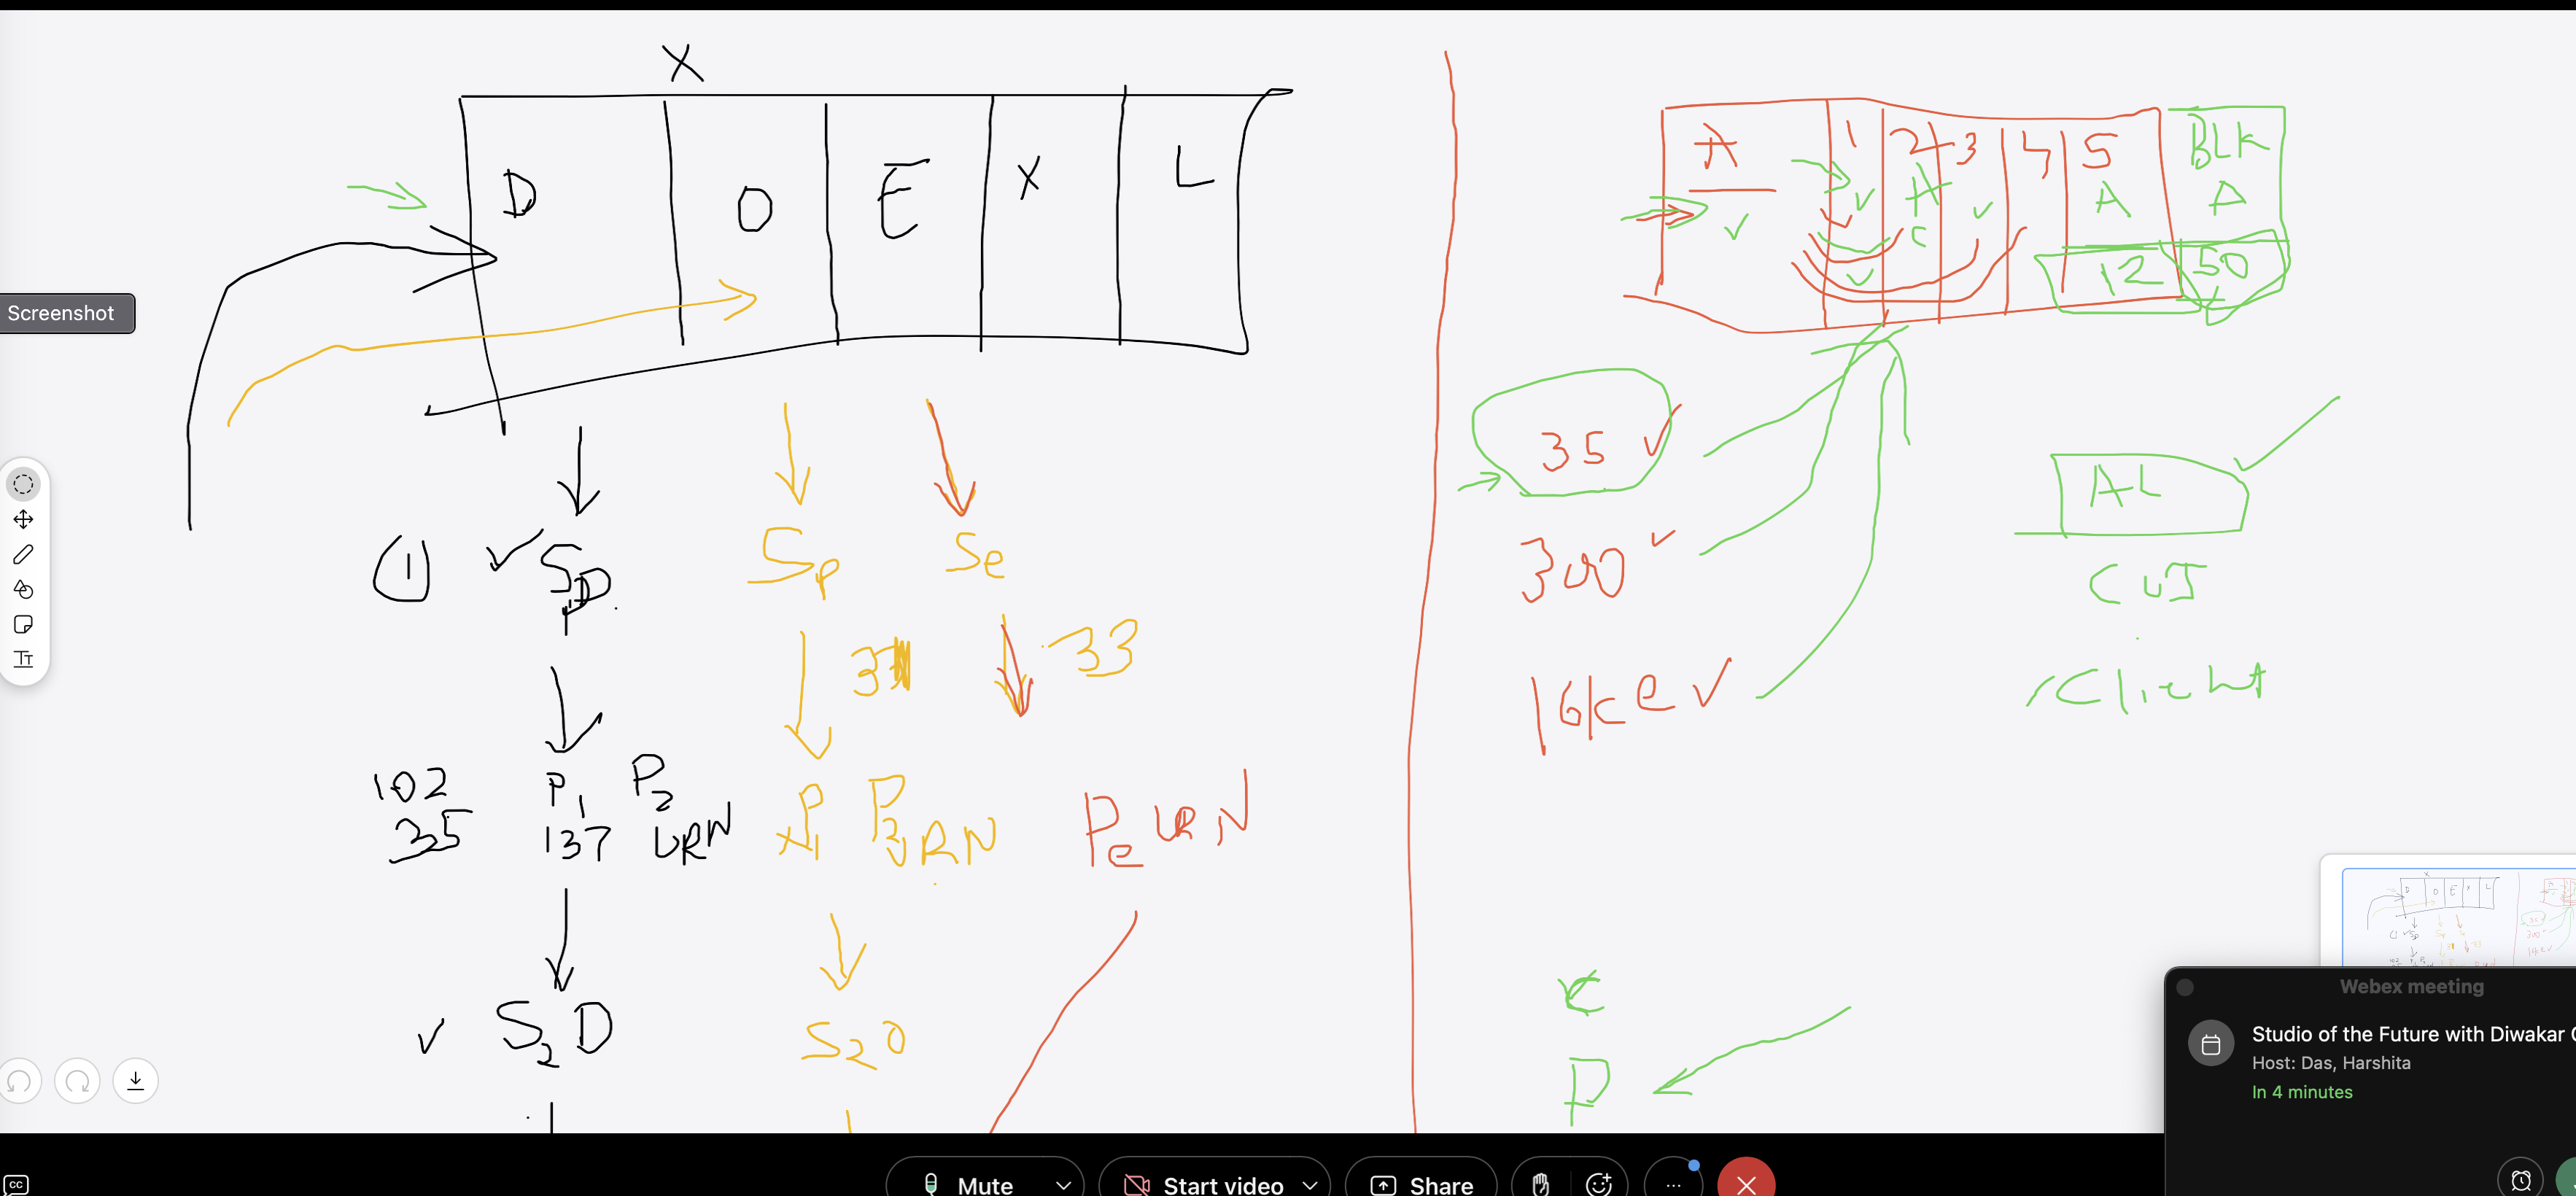 X
D O E X L
Screenshot
① ✓ S P D
S P
S e
33
102 P1 P2
35 137 URN
P1 P3 URN
Pe URN
✓ S2 D
S2 O
A 1 2 3 4 5 BLK
✓ ✓ A ✓ A A
C
✓ 12 50
35 ✓
300 ✓
16k e ✓
AL
CUJ
Client
C
P
Webex meeting
Studio of the Future with Diwakar
Host: Das, Harshita
In 4 minutes
CC
Mute
Start video
Share